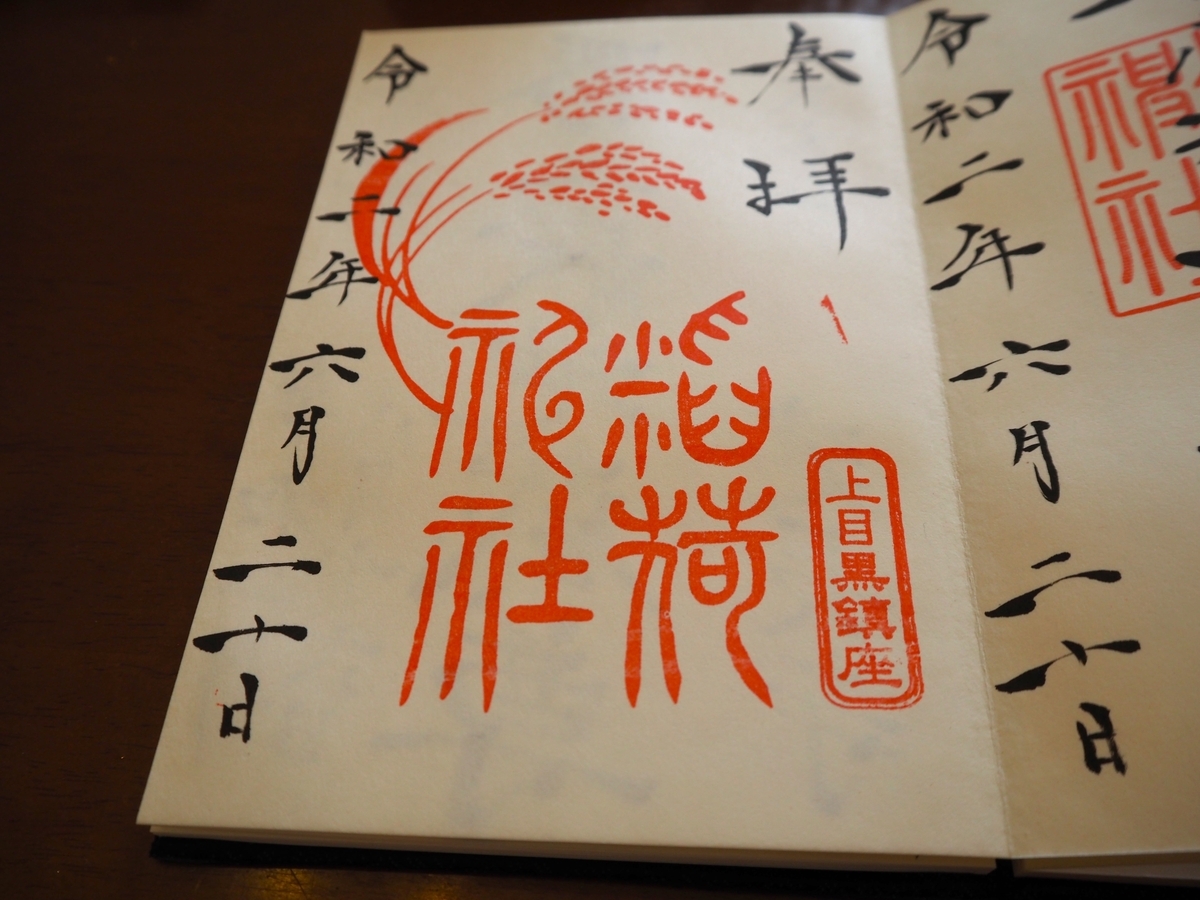 令和二年六月二十日
奉拝
上目黒鎮座
稲荷
神社
令和二年六月二十日